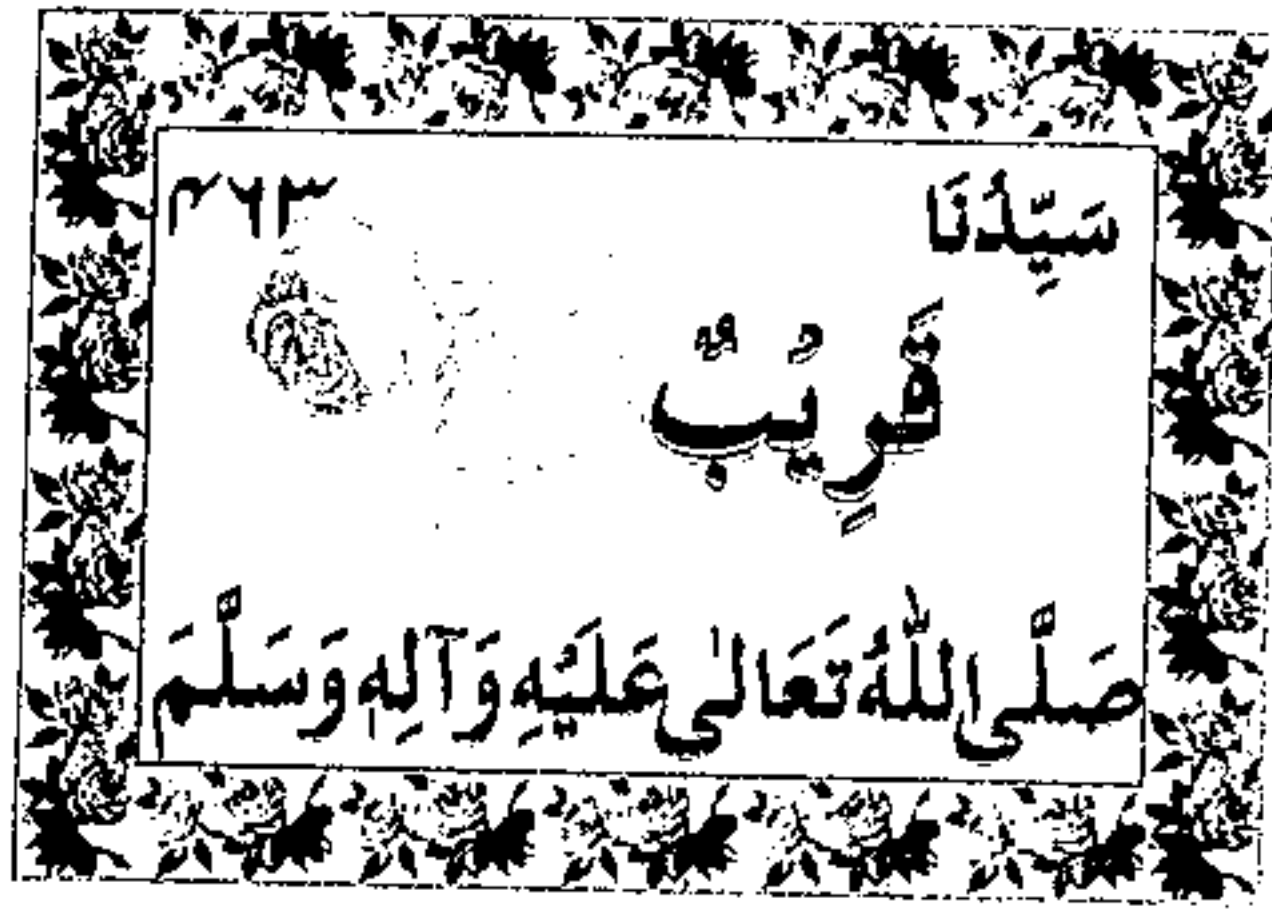 سَيِّدُنَا ۴۶۳
قَرِيْبٌ
صَلَّى اللهُ تَعَالٰى عَلَيْهِ وَآلِهٖ وَسَلَّمَ